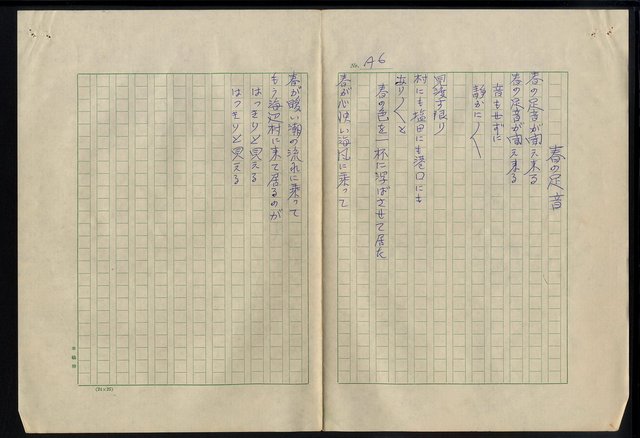 No. A6
春の足音
春の足音が聞え来る
春の足音が聞え来る
音もせずに
静かに〱
見渡す限り
村にも塩田にも港口にも
あり〱と
春の色を一杯に浮ばさせて居た
春が心快い海風に乗って
春が暖い潮の流れに乗って
もう海辺村に来て居るのが
はっきりと見える
はっきりと見える
(24×25)